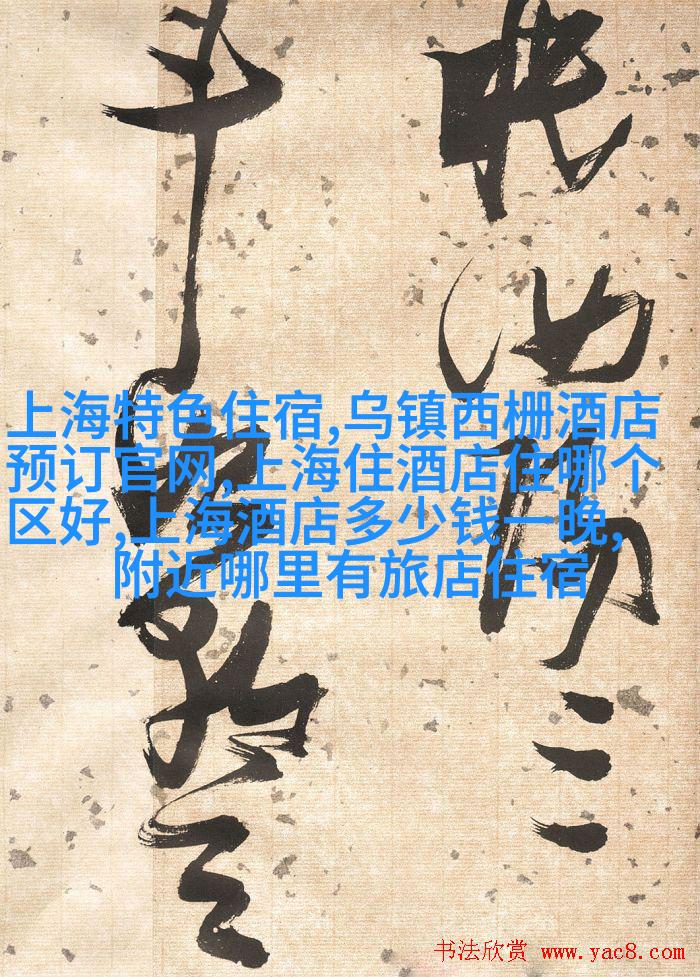 眠汝阳三
斗始朝天
上海特色住宿,乌镇西栅酒店
预订官网,上海住酒店住哪个
区好,上海酒店多少钱一晚,
附近哪里有旅店住宿
书法欣赏 www.yac8.com